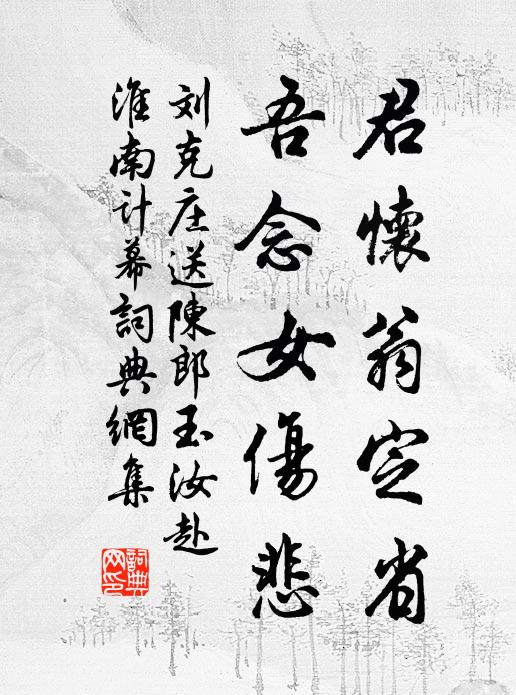 君懷翁定省
吾念女傷悲
刘克庄送陳郎玉汝赴
淮南计幕詞典網集
詞典网印